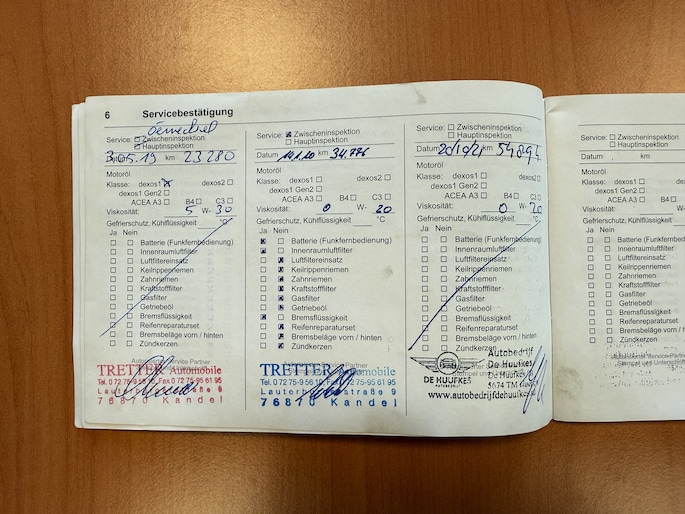 6 Servicebestätigung
Ölwechsel
Service: Zwischeninspektion
Hauptinspektion
Datum 30.05.19 km 23280
Motoröl
Klasse: dexos1 x dexos2
dexos1 Gen2
ACEA A3 B4 C3
Viskosität: 5 W- 30
Gefrierschutz, Kühlflüssigkeit °C
Ja Nein
Batterie (Funkfernbedienung)
Innenraumluftfilter
Luftfiltereinsatz
Keilrippenriemen
Zahnriemen
Kraftstofffilter
Gasfilter
Getriebeöl
Bremsflüssigkeit
Reifenreparaturset
Bremsbeläge vorn / hinten
Zündkerzen
TRETTER Automobile
Lauterbergstraße 9
76870 Kandel
Service: x Zwischeninspektion
Hauptinspektion
Datum km 34.776
Motoröl
Klasse: dexos1 dexos2
dexos1 Gen2
ACEA A3 B4 C3
Viskosität: 0 W- 20
Gefrierschutz, Kühlflüssigkeit °C
Ja Nein
Batterie (Funkfernbedienung)
Innenraumluftfilter
Luftfiltereinsatz
Keilrippenriemen
Zahnriemen
Kraftstofffilter
Gasfilter
Getriebeöl
Bremsflüssigkeit
Reifenreparaturset
Bremsbeläge vorn / hinten
Zündkerzen
TRETTER Automobile
76870 Kandel
Service: Zwischeninspektion
Hauptinspektion
Datum km 54894
Motoröl
Klasse: dexos1 dexos2
dexos1 Gen2
ACEA A3 B4 C3
Viskosität: 0 W- 20
Gefrierschutz, Kühlflüssigkeit °C
Ja Nein
Batterie (Funkfernbedienung)
Innenraumluftfilter
Luftfiltereinsatz
Keilrippenriemen
Zahnriemen
Kraftstofffilter
Gasfilter
Getriebeöl
Bremsflüssigkeit
Reifenreparaturset
Bremsbeläge vorn / hinten
Zündkerzen
DE HUUFKES
Autobedrijf
De Huufkes
5674 TM
www.autobedrijfdehuufkes
Service:
Datum km
Motoröl
Klasse: dexos1
dexos1 Gen2
ACEA A3
Viskosität:
Gefrierschutz, Kühl
Ja Nein
Batterie (Fun
Innenraumluft
Luftfiltereinsa
Keilrippenrie
Zahnriemen
Kraftstofffilte
Gasfilter
Getriebeöl
Bremsflüssig
Reifenrepara
Bremsbeläge
Zündkerzen